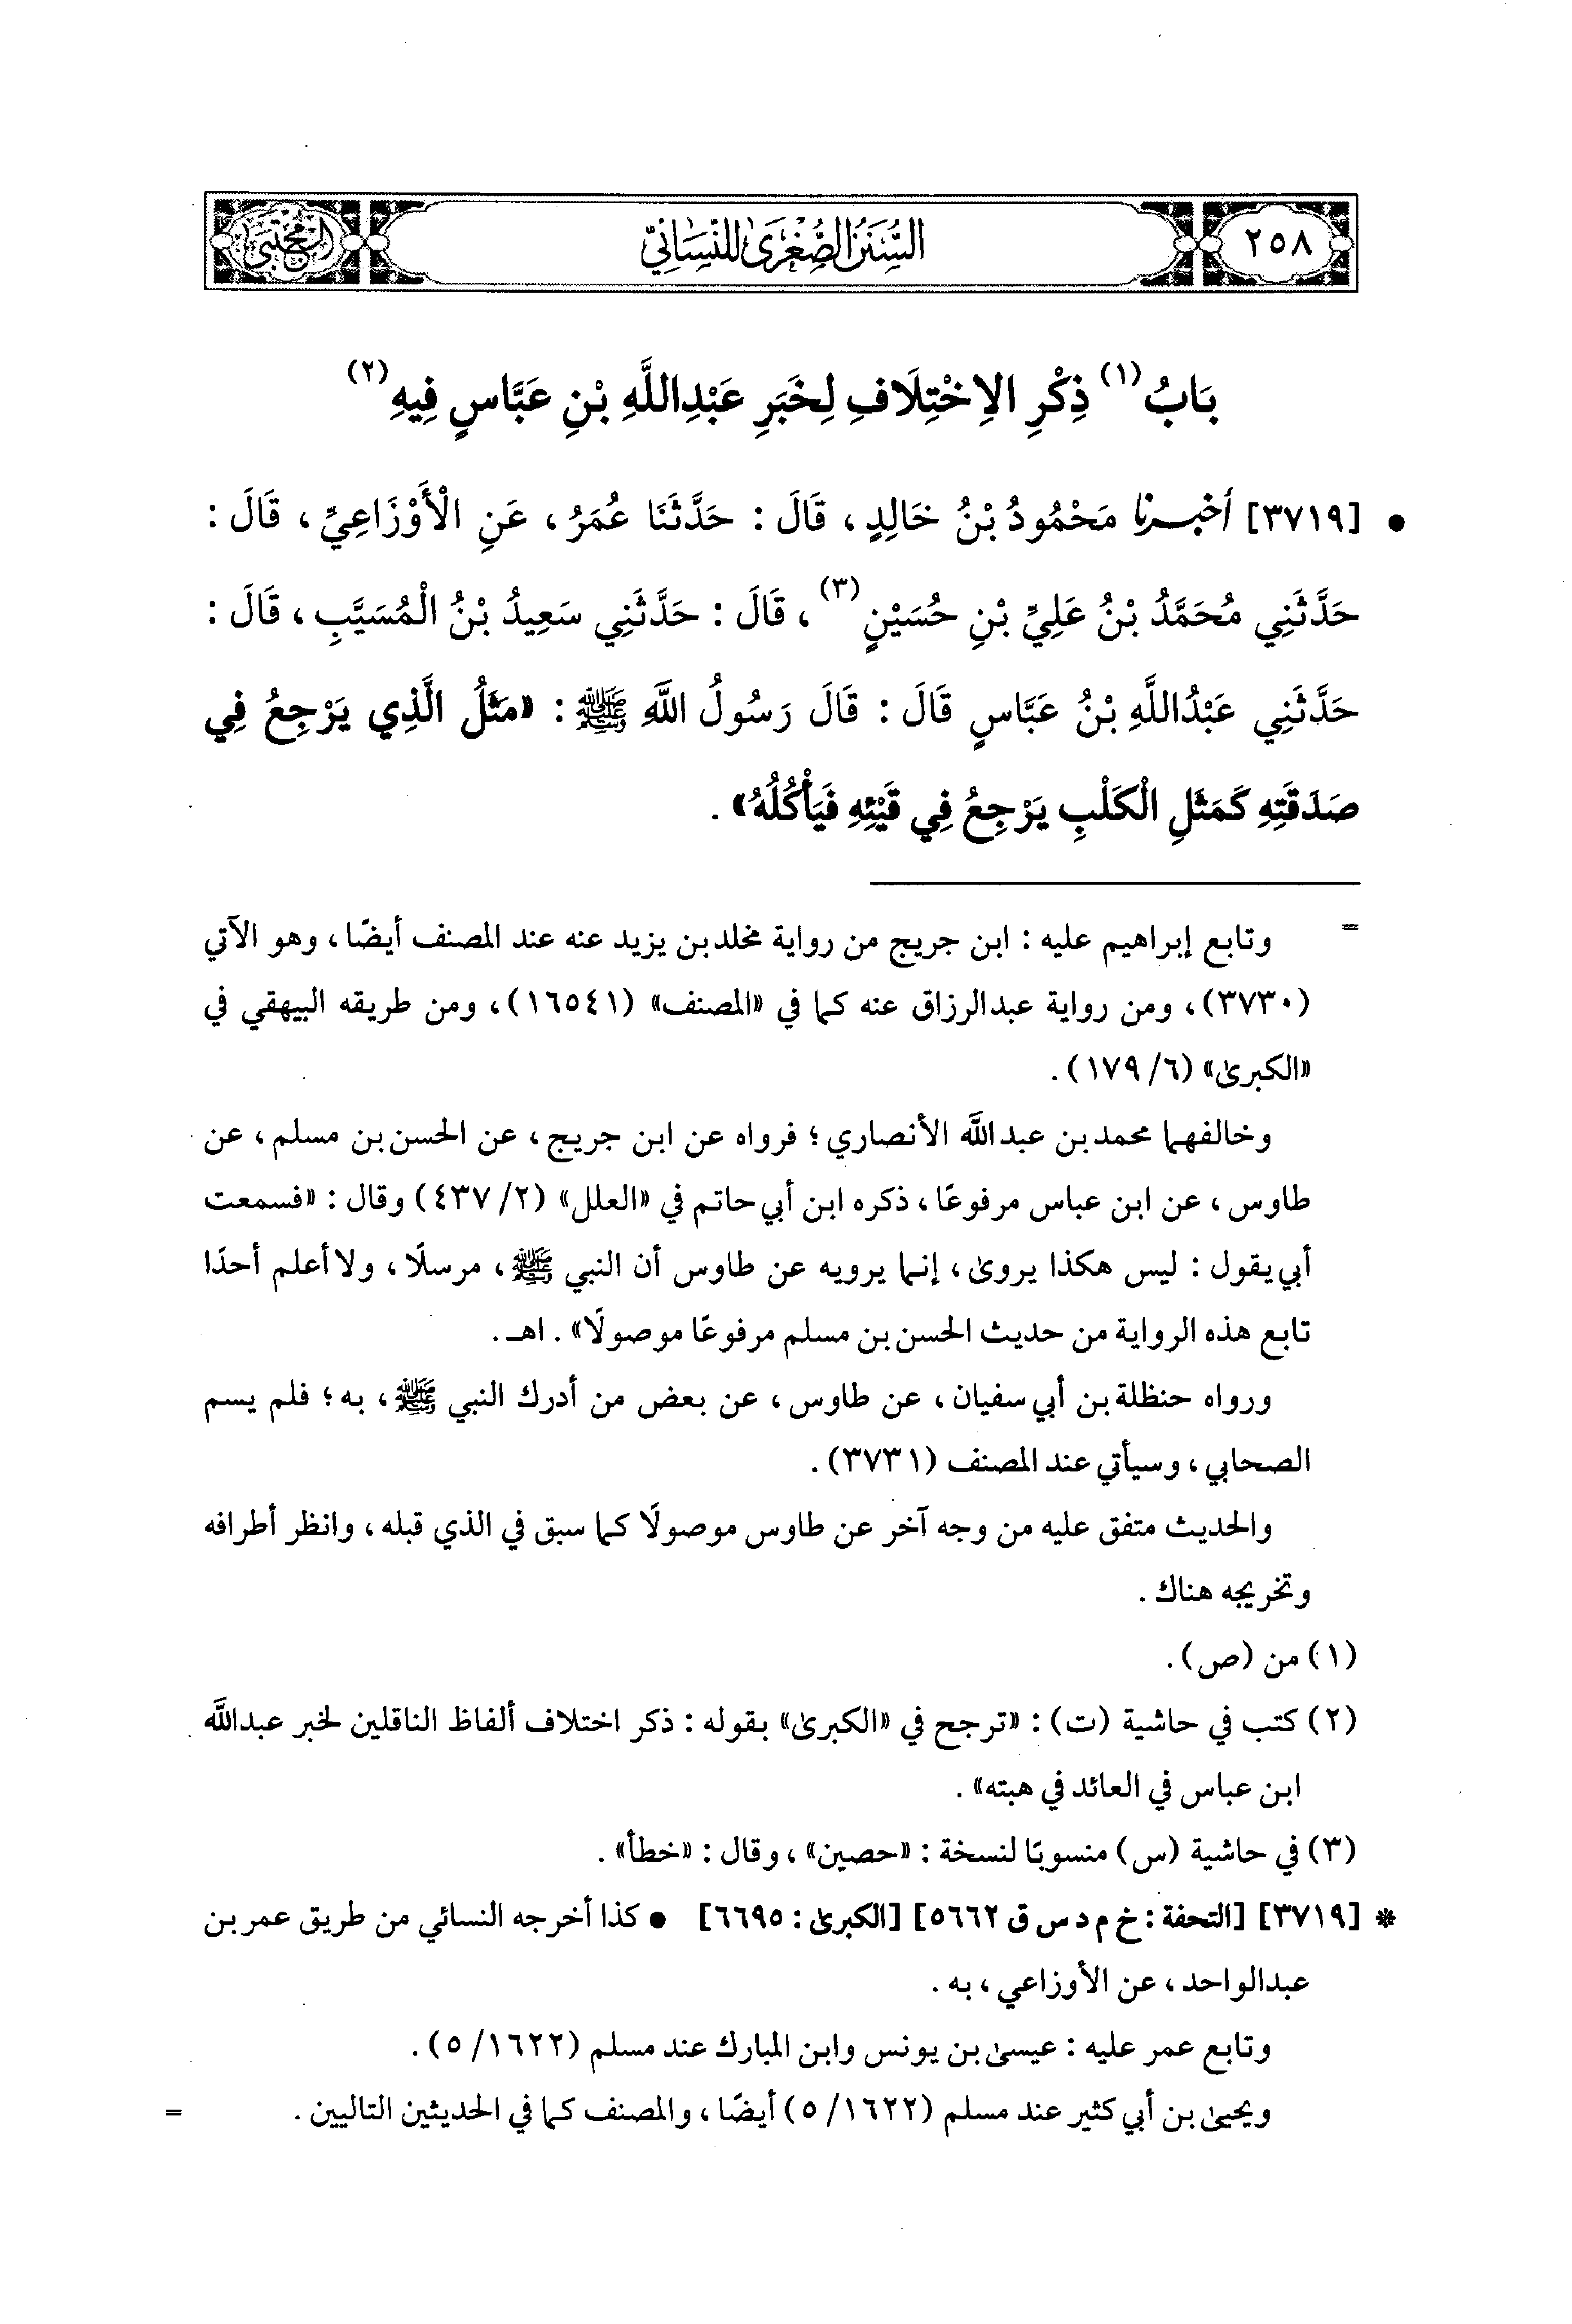 ٢٥٨
السُّنَنُ الصُّغْرَىٰ لِلنَّسَائِيِّ
المجتبى
بَابُ (١) ذِكْرِ الِاخْتِلَافِ لِخَبَرِ عَبْدِاللَّهِ بْنِ عَبَّاسٍ فِيهِ (٢)
• [٣٧١٩] أخبرنا مَحْمُودُ بْنُ خَالِدٍ، قَالَ: حَدَّثَنَا عُمَرُ، عَنِ الْأَوْزَاعِيِّ، قَالَ:
حَدَّثَنِي مُحَمَّدُ بْنُ عَلِيِّ بْنِ حُسَيْنٍ (٣)، قَالَ: حَدَّثَنِي سَعِيدُ بْنُ الْمُسَيَّبِ، قَالَ:
حَدَّثَنِي عَبْدُاللَّهِ بْنُ عَبَّاسٍ قَالَ: قَالَ رَسُولُ اللَّهِ ﷺ: «مَثَلُ الَّذِي يَرْجِعُ فِي
صَدَقَتِهِ كَمَثَلِ الْكَلْبِ يَرْجِعُ فِي قَيْئِهِ فَيَأْكُلُهُ».
= وتابع إبراهيم عليه: ابن جريج من رواية مخلد بن يزيد عنه عند المصنف أيضًا، وهو الآتي
(٣٧٣٠)، ومن رواية عبدالرزاق عنه كما في «المصنف» (١٦٥٤١)، ومن طريقه البيهقي في
«الكبرىٰ» (٦/ ١٧٩).
وخالفهما محمد بن عبدالله الأنصاري؛ فرواه عن ابن جريج، عن الحسن بن مسلم، عن
طاوس، عن ابن عباس مرفوعًا، ذكره ابن أبي حاتم في «العلل» (٢/ ٤٣٧) وقال: «فسمعت
أبي يقول: ليس هكذا يروىٰ، إنما يرويه عن طاوس أن النبي ﷺ، مرسلًا، ولا أعلم أحدًا
تابع هذه الرواية من حديث الحسن بن مسلم مرفوعًا موصولًا». اهـ.
ورواه حنظلة بن أبي سفيان، عن طاوس، عن بعض من أدرك النبي ﷺ، به؛ فلم يسم
الصحابي، وسيأتي عند المصنف (٣٧٣١).
والحديث متفق عليه من وجه آخر عن طاوس موصولًا كما سبق في الذي قبله، وانظر أطرافه
وتخريجه هناك.
(١) من (ص).
(٢) كتب في حاشية (ت): «ترجح في «الكبرىٰ» بقوله: ذكر اختلاف ألفاظ الناقلين لخبر عبدالله
ابن عباس في العائد في هبته».
(٣) في حاشية (س) منسوبًا لنسخة: «حصين»، وقال: «خطأ».
* [٣٧١٩] [التحفة: خ م د س ق ٥٦٦٢] [الكبرىٰ: ٦٦٩٥] • كذا أخرجه النسائي من طريق عمر بن
عبدالواحد، عن الأوزاعي، به.
وتابع عمر عليه: عيسىٰ بن يونس وابن المبارك عند مسلم (١٦٢٢/ ٥).
ويحيىٰ بن أبي كثير عند مسلم (١٦٢٢/ ٥) أيضًا، والمصنف كما في الحديثين التاليين. =